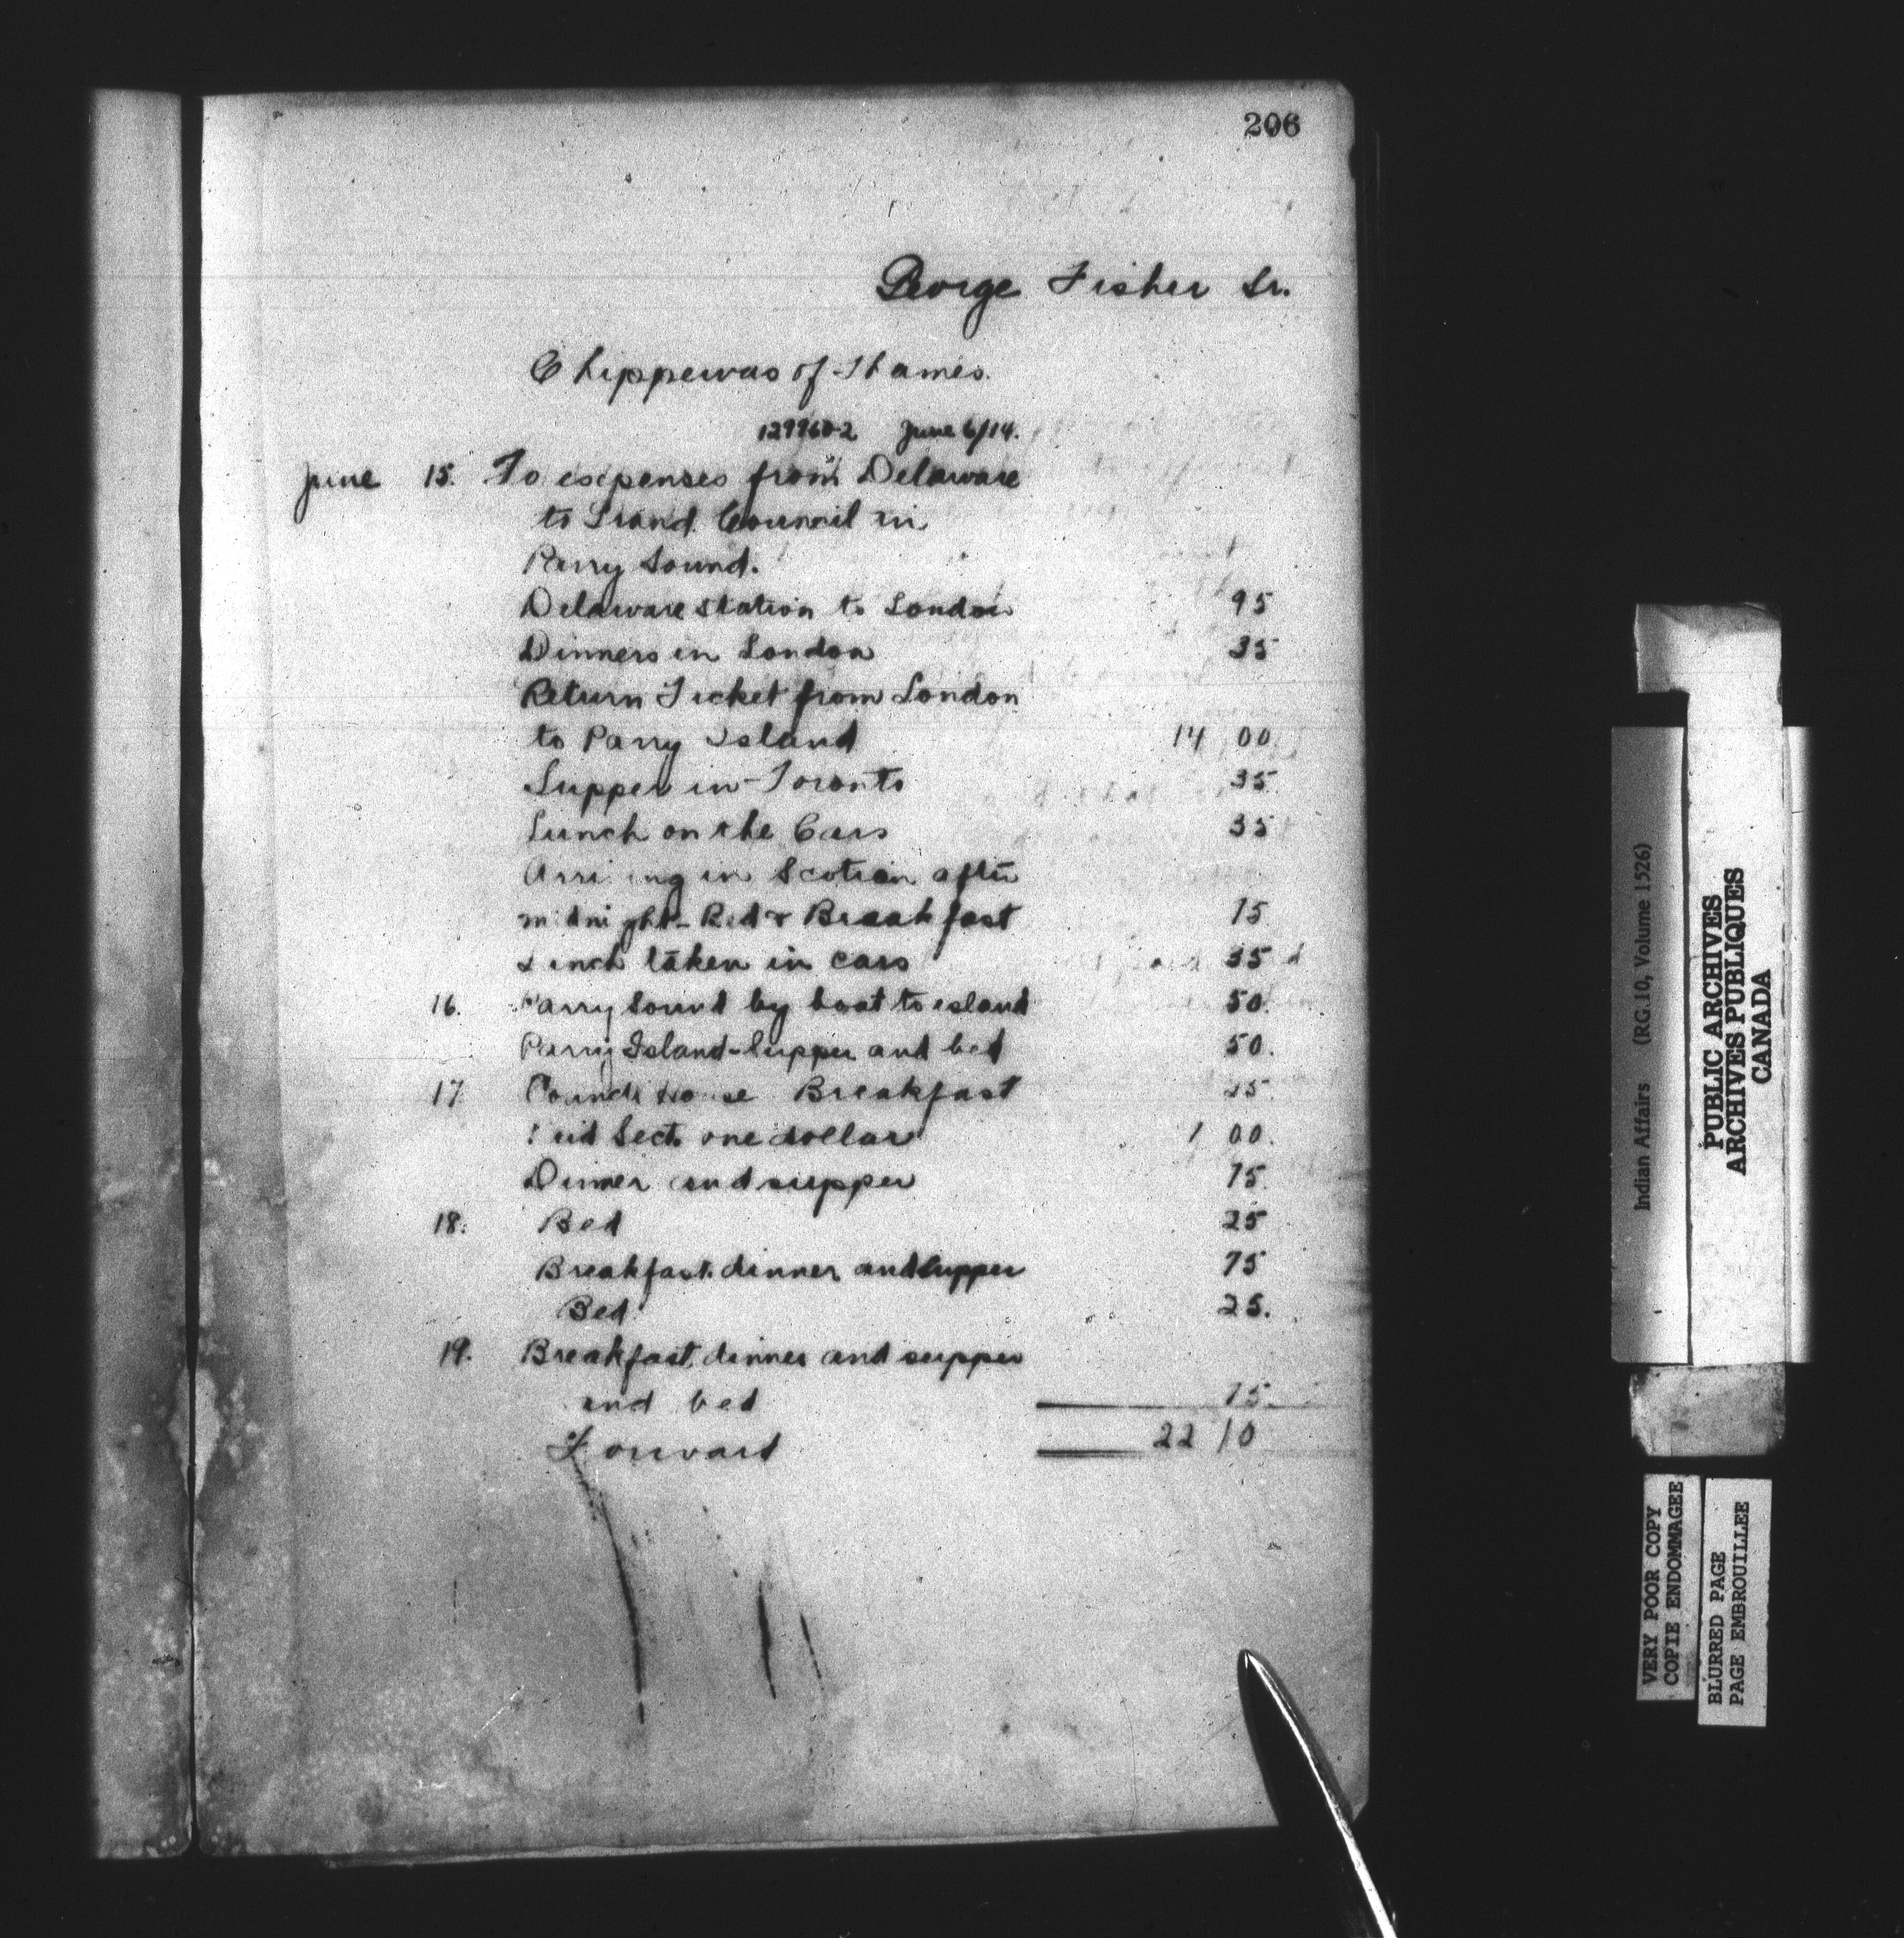 206
George Fisher Sr.
Chippewas of Thames.
129960-2 June 6/14.
June 15. To expenses from Delaware
to Grand Council in
Parry Sound.
Delaware station to London 95
Dinners in London 35
Return Ticket from London
to Parry Island 14 00
Supper in Toronto 35
Lunch on the Cars 35
Arriving in Scotian after
midnight - Bed & Breakfast 75
Lunch taken in cars 35
16. Parry Sound by boat to island 50.
Parry Island - supper and bed 50.
17 Council House Breakfast 25
Sect. one dollar 1 00.
Dinner and supper 75.
18. Bed 25
Breakfast. dinner and supper 75
Bed 25.
19. Breakfast, dinner and supper
and bed 75.
Forward 22 10
Indian Affairs (RG.10, Volume 1526)
PUBLIC ARCHIVES
ARCHIVES PUBLIQUES
CANADA
VERY POOR COPY
COPIE ENDOMMAGEE
BLURRED PAGE
PAGE EMBROUILLEE